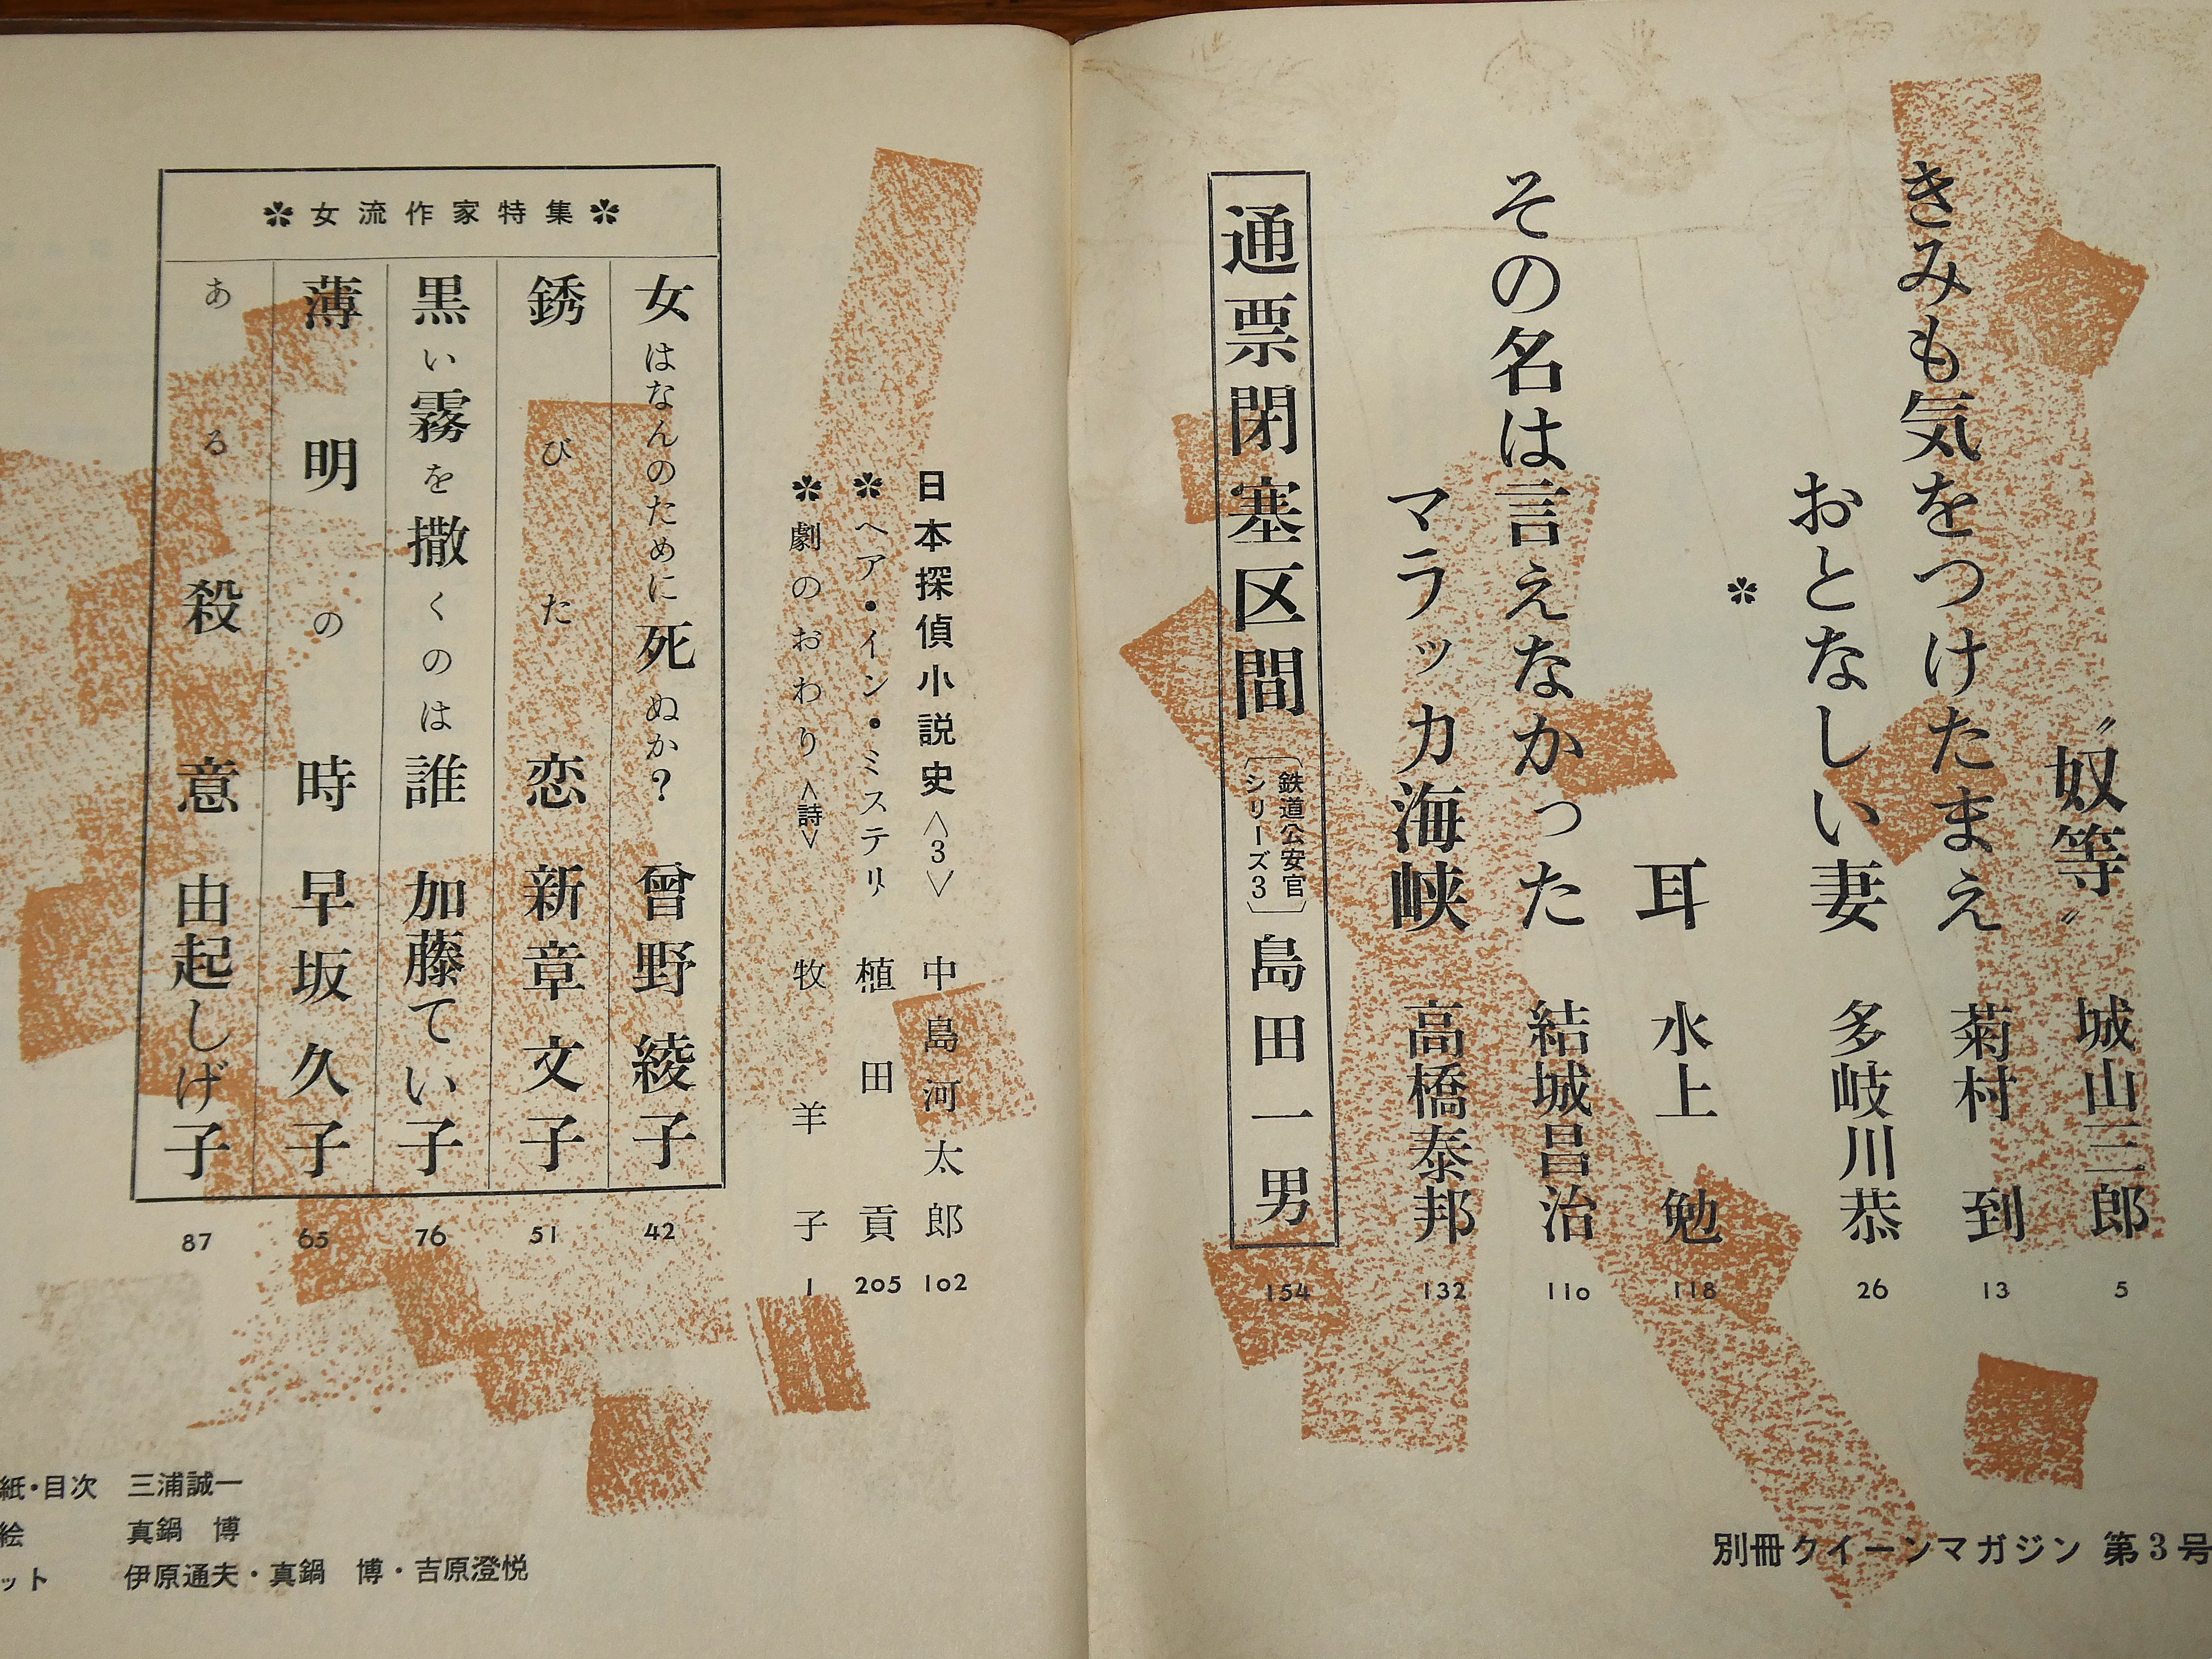 〝奴等〟 城山三郎 5
きみも気をつけたまえ 菊村到 13
おとなしい妻 多岐川恭 26
✽
耳 水上勉 118
その名は言えなかった 結城昌治 110
マラッカ海峡 高橋泰邦 132
通票閉塞区間〔鉄道公安官シリーズ3〕島田一男 154
別冊クイーンマガジン 第3号
日本探偵小説史〈3〉 中島河太郎 102
✽ヘア・イン・ミステリ 植田貢 205
✽劇のおわり〈詩〉 牧羊子 1
✽女流作家特集✽
女はなんのために死ぬか? 曾野綾子 42
銹びた恋 新章文子 51
黒い霧を撒くのは誰 加藤てい子 76
薄明の時 早坂久子 65
ある殺意 由起しげ子 87
紙・目次 三浦誠一
絵 真鍋 博
ット 伊原通夫・真鍋 博・吉原澄悦